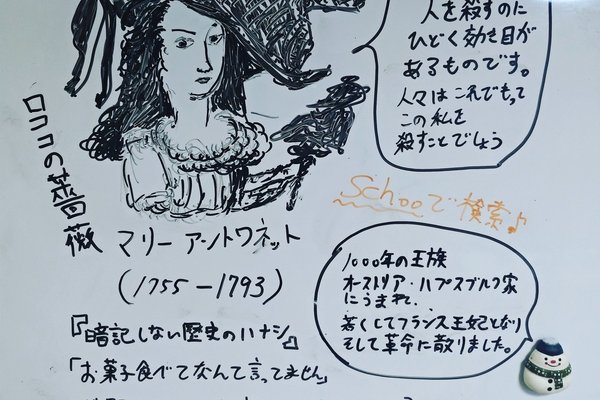 人を殺すのに
ひどく効き目が
あるものです。
人々はこれでもって
この私を
殺すことでしょう
ロココの薔薇
Schooで検索♪
マリーアントワネット
(1755-1793)
1000年の王族
オーストリア・ハプスブルク家
にうまれ、
若くしてフランス王妃となり
そして革命に散りました。
『暗記しない歴史のハナシ』
「お菓子食べてなんて言ってません」